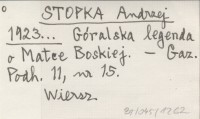 STOPKA Andrzej
1923... Góralska legenda
o Matce Boskiej. – Gaz.
Podh. 11, nr 15.
Wiersz